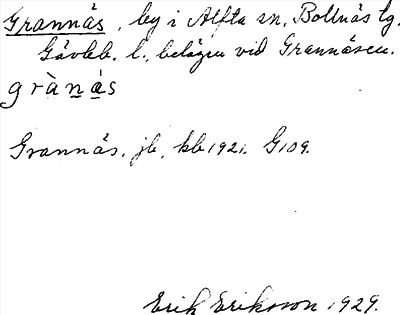 Grannäs, by i Alfta sn, Bollnäs tg,
Gävleb. l., belägen vid Grannåsen.
grànás
Grannäs, jb, kb 1921. G 109.
Erik Erikson 1929.